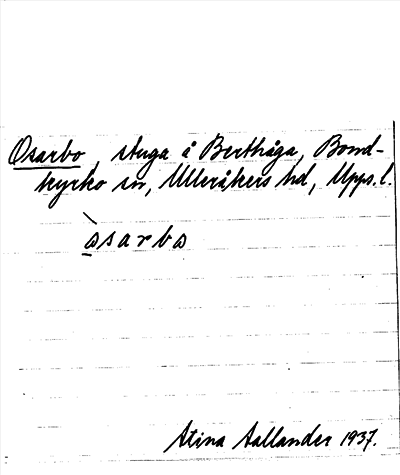 Osarbo, stuga å Berthåga, Bond-
kyrko sn, Ulleråkers hd, Upps. l.
òsarbo
Stina Aallander 1937.